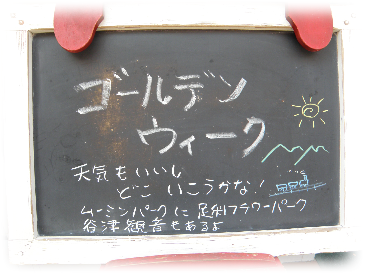 ゴールデン
ウィーク
天気もいいし
どこ いこうかな!
ムーミンパークに 足利フラワーパーク
谷津観音もあるよ